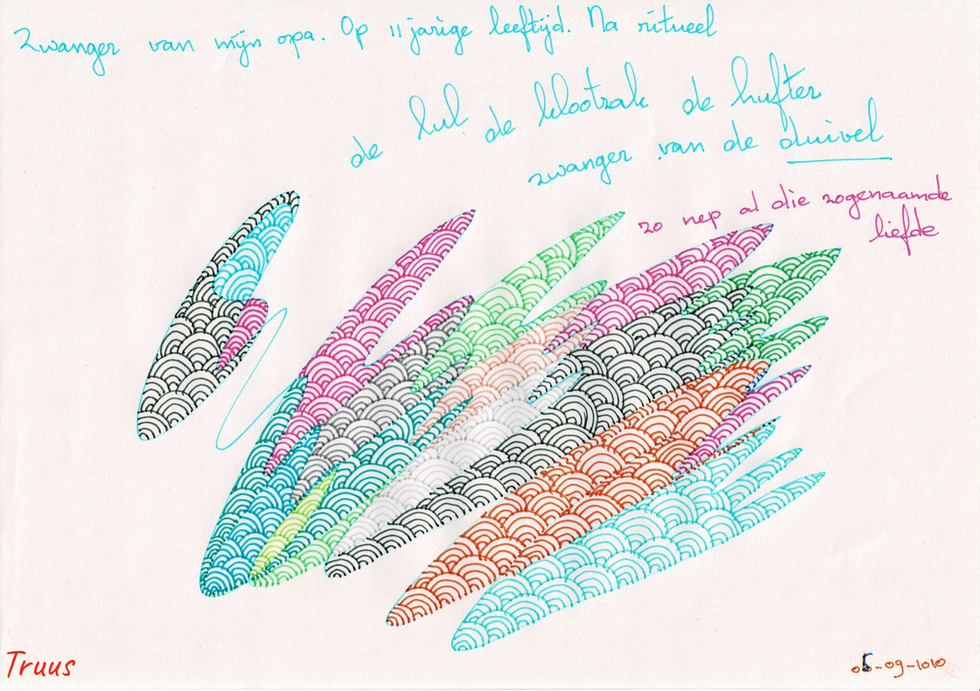 Zwanger van mijn opa. Op 11 jarige leeftijd. Na ritueel
de lul de klootzak de hufter
zwanger van de duivel
zo nep al die zogenaamde
liefde
Truus
06-09-1010